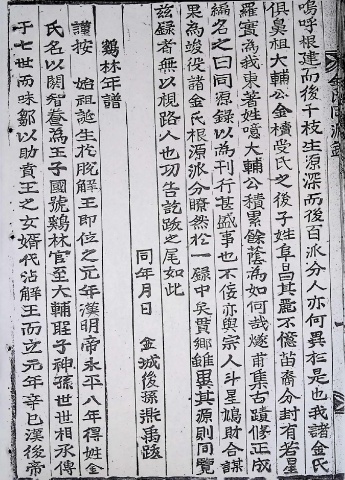 嗚呼根建而後千枝生源深而後百派分人亦何異於是也我諸金氏
俱鼻祖大輔公金櫝受氏之後子姓阜昌其麗不億苗裔分封有若星
羅實為我東著姓噫大輔公積累餘蔭為如何哉燧甫集古蹟修正成
編名之曰同源錄以為刊行甚盛事也不佞亦與宗人斗星鳩財合謀
果為竣役諸金氏根源派分瞭然於一錄中矣貫鄉雖異其源則同覽
茲錄者無以視路人也功告訖跋之尾如此
同年月日 金城後孫 禹跋
鷄林年譜
謹按 始祖誕生於脫解王即位之元年漢明帝永平八年得姓金
氏名以閼智養為王子國號鷄林官至大輔聖子神孫世世相承傳
于七世而味鄒以助賁王之女婿代沾解王而立元年辛巳漢後帝